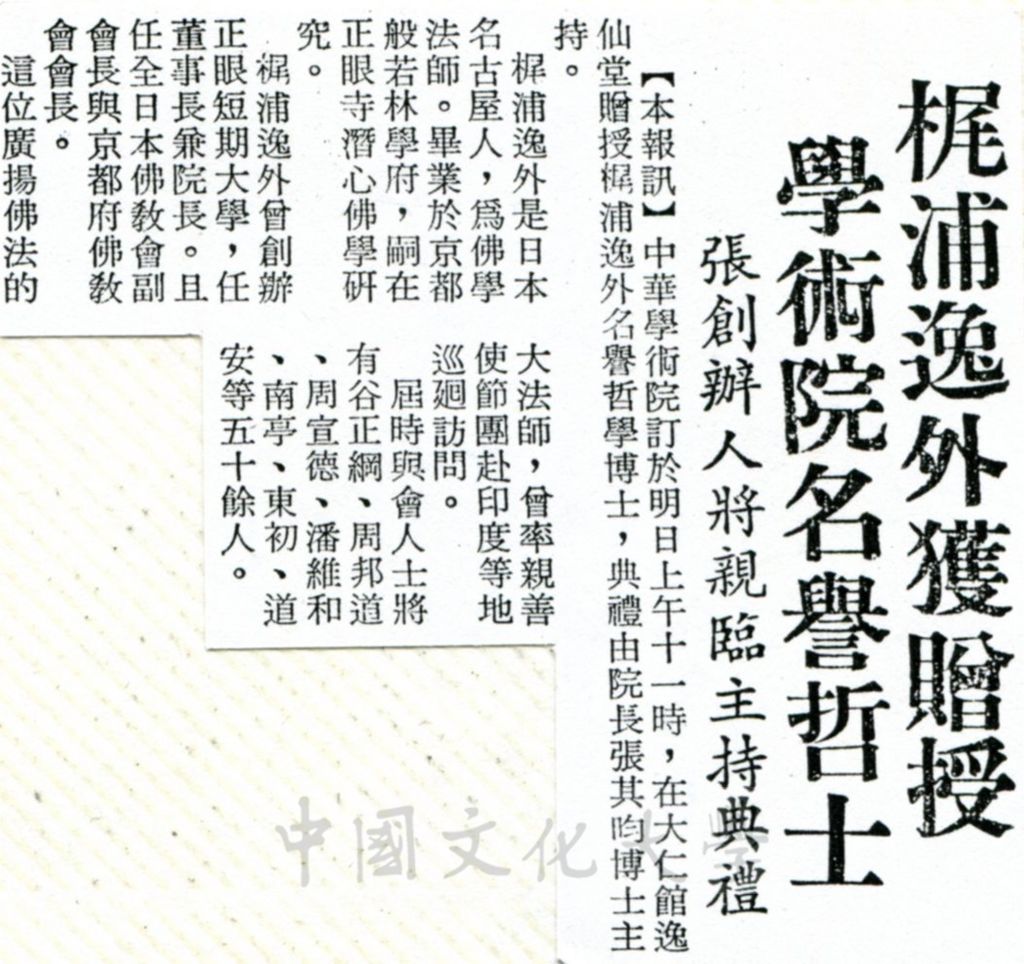 梶浦逸外獲贈授
學術院名譽哲士
張創辦人將親臨主持典禮
【本報訊】中華學術院訂於明日上午十一時，在大仁館逸
仙堂贈授梶浦逸外名譽哲學博士，典禮由院長張其昀博士主
持。
梶浦逸外是日本
名古屋人，爲佛學
法師。畢業於京都
般若林學府，嗣在
正眼寺潛心佛學研
究。
梶浦逸外曾創辦
正眼短期大學，任
董事長兼院長。且
任全日本佛敎會副
會長與京都府佛敎
會會長。
這位廣揚佛法的
大法師，曾率親善
使節團赴印度等地
巡廻訪問。
屆時與會人士將
有谷正綱、周邦道
、周宣德、潘維和
、南亭、東初、道
安等五十餘人。
中國文化大學